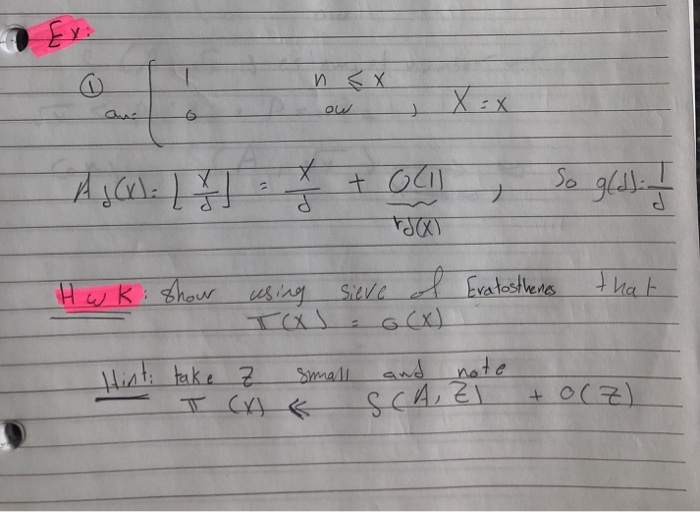 Ex:
① an= { 1 n ≤ x
0 ow , X = x
A_d(x) = ⌊x/d⌋ = x/d + O(1) , So g(d) = 1/d
r_d(x)
Hwk: Show using sieve of Eratosthenes that
π(x) = o(x)
Hint: take z small and note
π(x) ≤ S(A, Z) + O(Z)